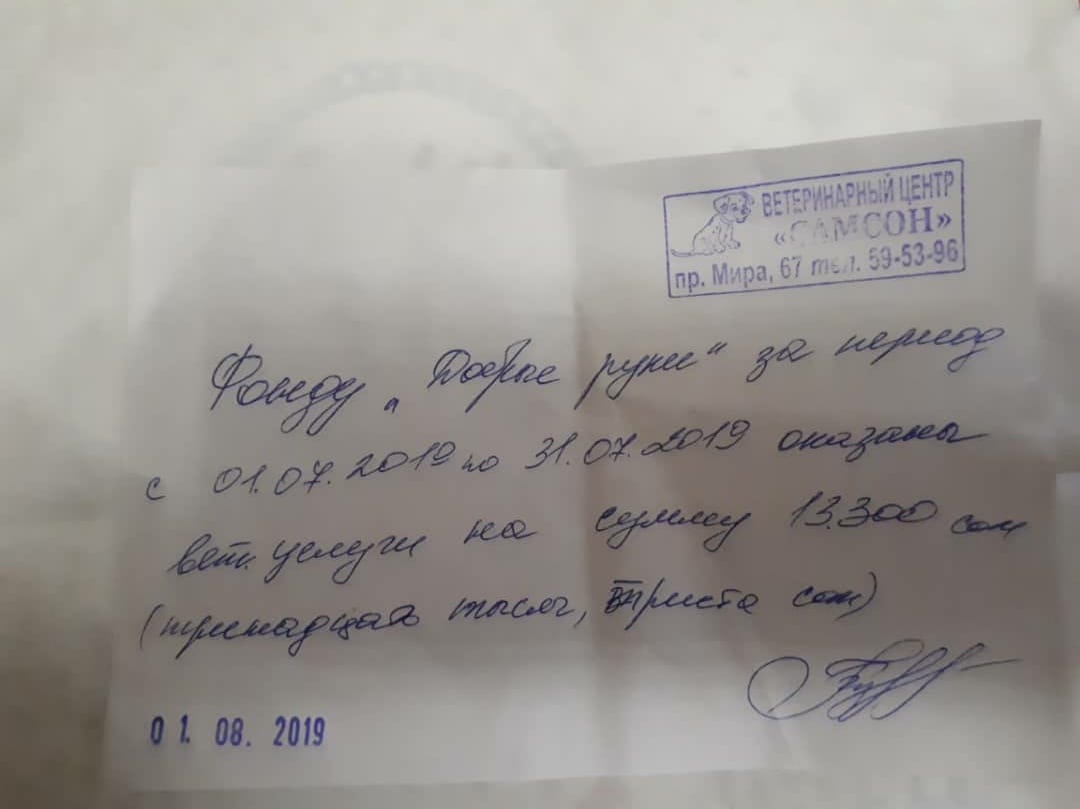 ВЕТЕРИНАРНЫЙ ЦЕНТР
«САМСОН»
пр. Мира, 67 тел. 59-53-96
Фонду „Добрые руки“ за период
с 01.07.2019 по 31.07.2019 оказаны
вет. услуги на сумму 13.300 сом
(тринадцать тысяч, триста сом)
01. 08. 2019